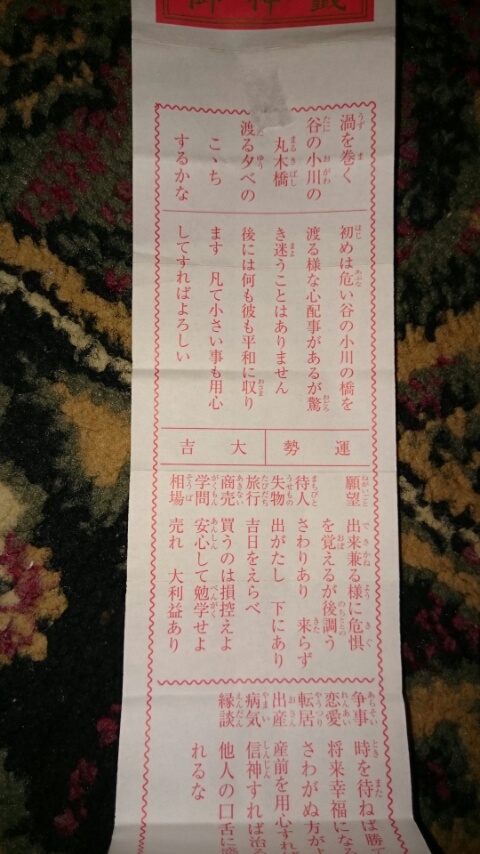 御神籤
渦を巻く
谷の小川の
丸木橋
渡る夕べの
こゝち
するかな
初めは危い谷の小川の橋を
渡る様な心配事があるが驚
き迷うことはありません
後には何も彼も平和に収り
ます 凡て小さい事も用心
してすればよろしい
運勢
大吉
願望 出来兼る様に危惧
を覚えるが後調う
待人 さわりあり 来らず
失物 出がたし 下にあり
旅行 吉日をえらべ
商売 買うのは損控えよ
学問 安心して勉学せよ
相場 売れ 大利益あり
争事 時を待ねば勝
恋愛 将来幸福にな
転居 さわがぬ方が
出産 産前を用心すれ
病気 信神すれば治
縁談 他人の口舌に
れるな